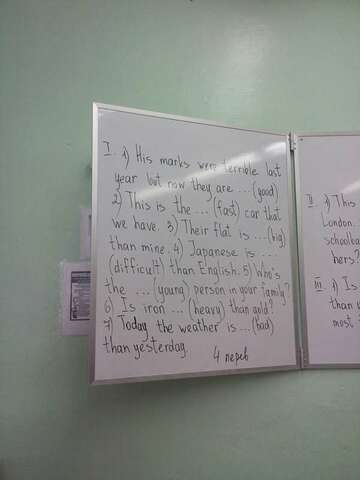 I. 1) His marks were terrible last
year but now they are ... (good)
2) This is the ... (fast) car that
we have. 3) Their flat is ... (big)
than mine. 4) Japanese is ...
(difficult) than English. 5) Who's
the ... (young) person in your family?
6) Is iron ... (heavy) than gold?
7) Today the weather is ... (bad)
than yesterday.
4 перев
II 1) This
London.
schoolba
hers?
III 1) Is
than y
most